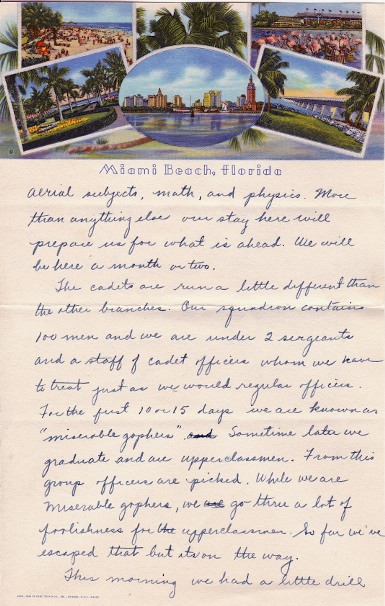 Miami Beach, Florida
aerial subjects, math, and physics. More
than anything else our stay here will
prepare us for what is ahead. We will
be here a month or two.
The cadets are run a little different than
the other branches. Our squadron contains
100 men and we are under 2 sergeants
and a staff of cadet officers whom we have
to treat just as we would regular officers.
For the first 10 or 15 days we are known as
"miserable gophers" and Sometime later we
graduate and are upperclassmen. From this
group officers are picked. While we are
miserable gophers, we are go thru a lot of
foolishness for the upperclassmen. So far we've
escaped that but its on the way.
This morning we had a little drill